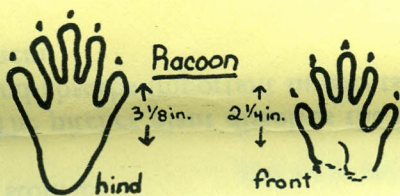 Racoon
3 1/8 in. 2 1/4 in.
hind front